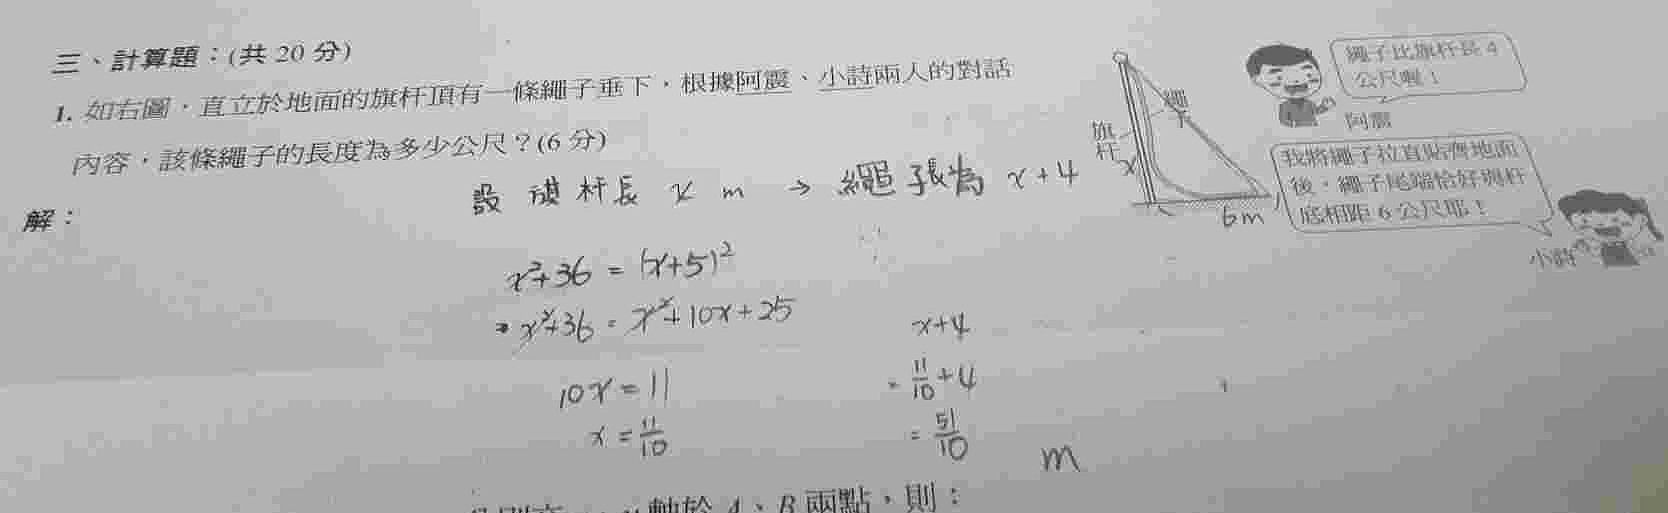 三、計算題：(共 20 分)
1. 如右圖，直立於地面的旗杆頂有一條繩子垂下，根據阿震、小詩兩人的對話
內容，該條繩子的長度為多少公尺？(6 分)
解：
設 旗杆長 x m → 繩子長為 x+4
x²+36 = (x+5)²
x²+36 = x²+10x+25
10x = 11
x = 11/10
x+4
= 11/10 + 4
= 51/10
m
繩子
旗杆
x
6m
繩子比旗杆長 4
公尺喔！
阿震
我將繩子拉直貼齊地面
後，繩子尾端恰好與杆
底相距 6 公尺耶！
小詩
軸於 A、B 兩點，則：